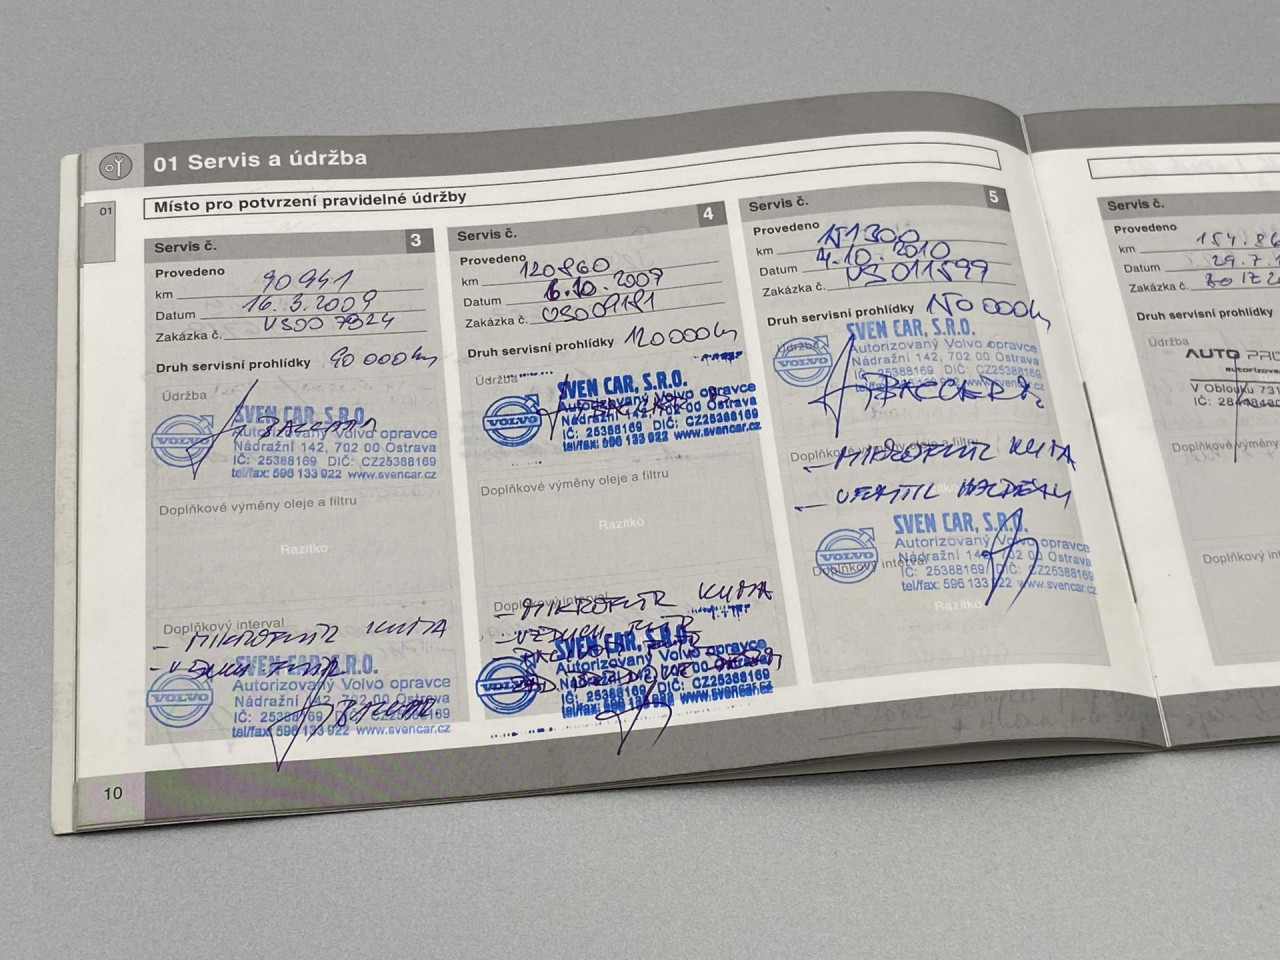 01 Servis a údržba
01
Místo pro potvrzení pravidelné údržby
Servis č. 3
Provedeno
km 90 941
Datum 16.3.2009
Zakázka č. VS00 7824
Druh servisní prohlídky 90 000 km
Údržba
SVEN CAR, S.R.O.
VOLVO
Autorizovaný Volvo opravce
Nádražní 142, 702 00 Ostrava
IČ: 25388169 DIČ: CZ25388169
tel/fax: 596 133 922 www.svencar.cz
Doplňkové výměny oleje a filtru
Razítko
Doplňkový interval
- MIKROFILTR KLIMA
SVEN CAR, S.R.O.
VOLVO
Autorizovaný Volvo opravce
Nádražní 142, 702 00 Ostrava
IČ: 25388169 DIČ: CZ25388169
tel/fax: 596 133 922 www.svencar.cz
10
Servis č. 4
Provedeno
km 120860
Datum 6.10.2009
Zakázka č. OS009181
Druh servisní prohlídky 120000 km
Údržba
SVEN CAR, S.R.O.
VOLVO
Autorizovaný Volvo opravce
Nádražní 142, 702 00 Ostrava
IČ: 25388169 DIČ: CZ25388169
tel/fax: 596 133 922 www.svencar.cz
Doplňkové výměny oleje a filtru
Razítko
Doplňkový interval
- MIKROFILTR KLIMA
- VZDUCH FILTR
SVEN CAR, S.R.O.
VOLVO
Autorizovaný Volvo opravce
Nádražní 142, 702 00 Ostrava
IČ: 25388169 DIČ: CZ25388169
tel/fax: 596 133 922 www.svencar.cz
Servis č. 5
Provedeno
km
Datum 4.10.2010
Zakázka č. VS011599
Druh servisní prohlídky
Údržba
SVEN CAR, S.R.O.
VOLVO
Autorizovaný Volvo opravce
Nádražní 142, 702 00 Ostrava
IČ: 25388169 DIČ: CZ25388169
Doplňkové výměny oleje a filtru
- MIKROFILTR KLIMA
SVEN CAR, S.R.O.
VOLVO
Autorizovaný Volvo opravce
Nádražní 142, 702 00 Ostrava
Doplňkový interval
IČ: 25388169 DIČ: CZ25388169
tel/fax: 596 133 922 www.svencar.cz
Razítko
Servis č.
Provedeno
km
Datum
Zakázka č.
Druh servisní prohlídky
Údržba
AUTO
V Oblouku 731
IČ:
Doplňkové výměny
Doplňkový inter